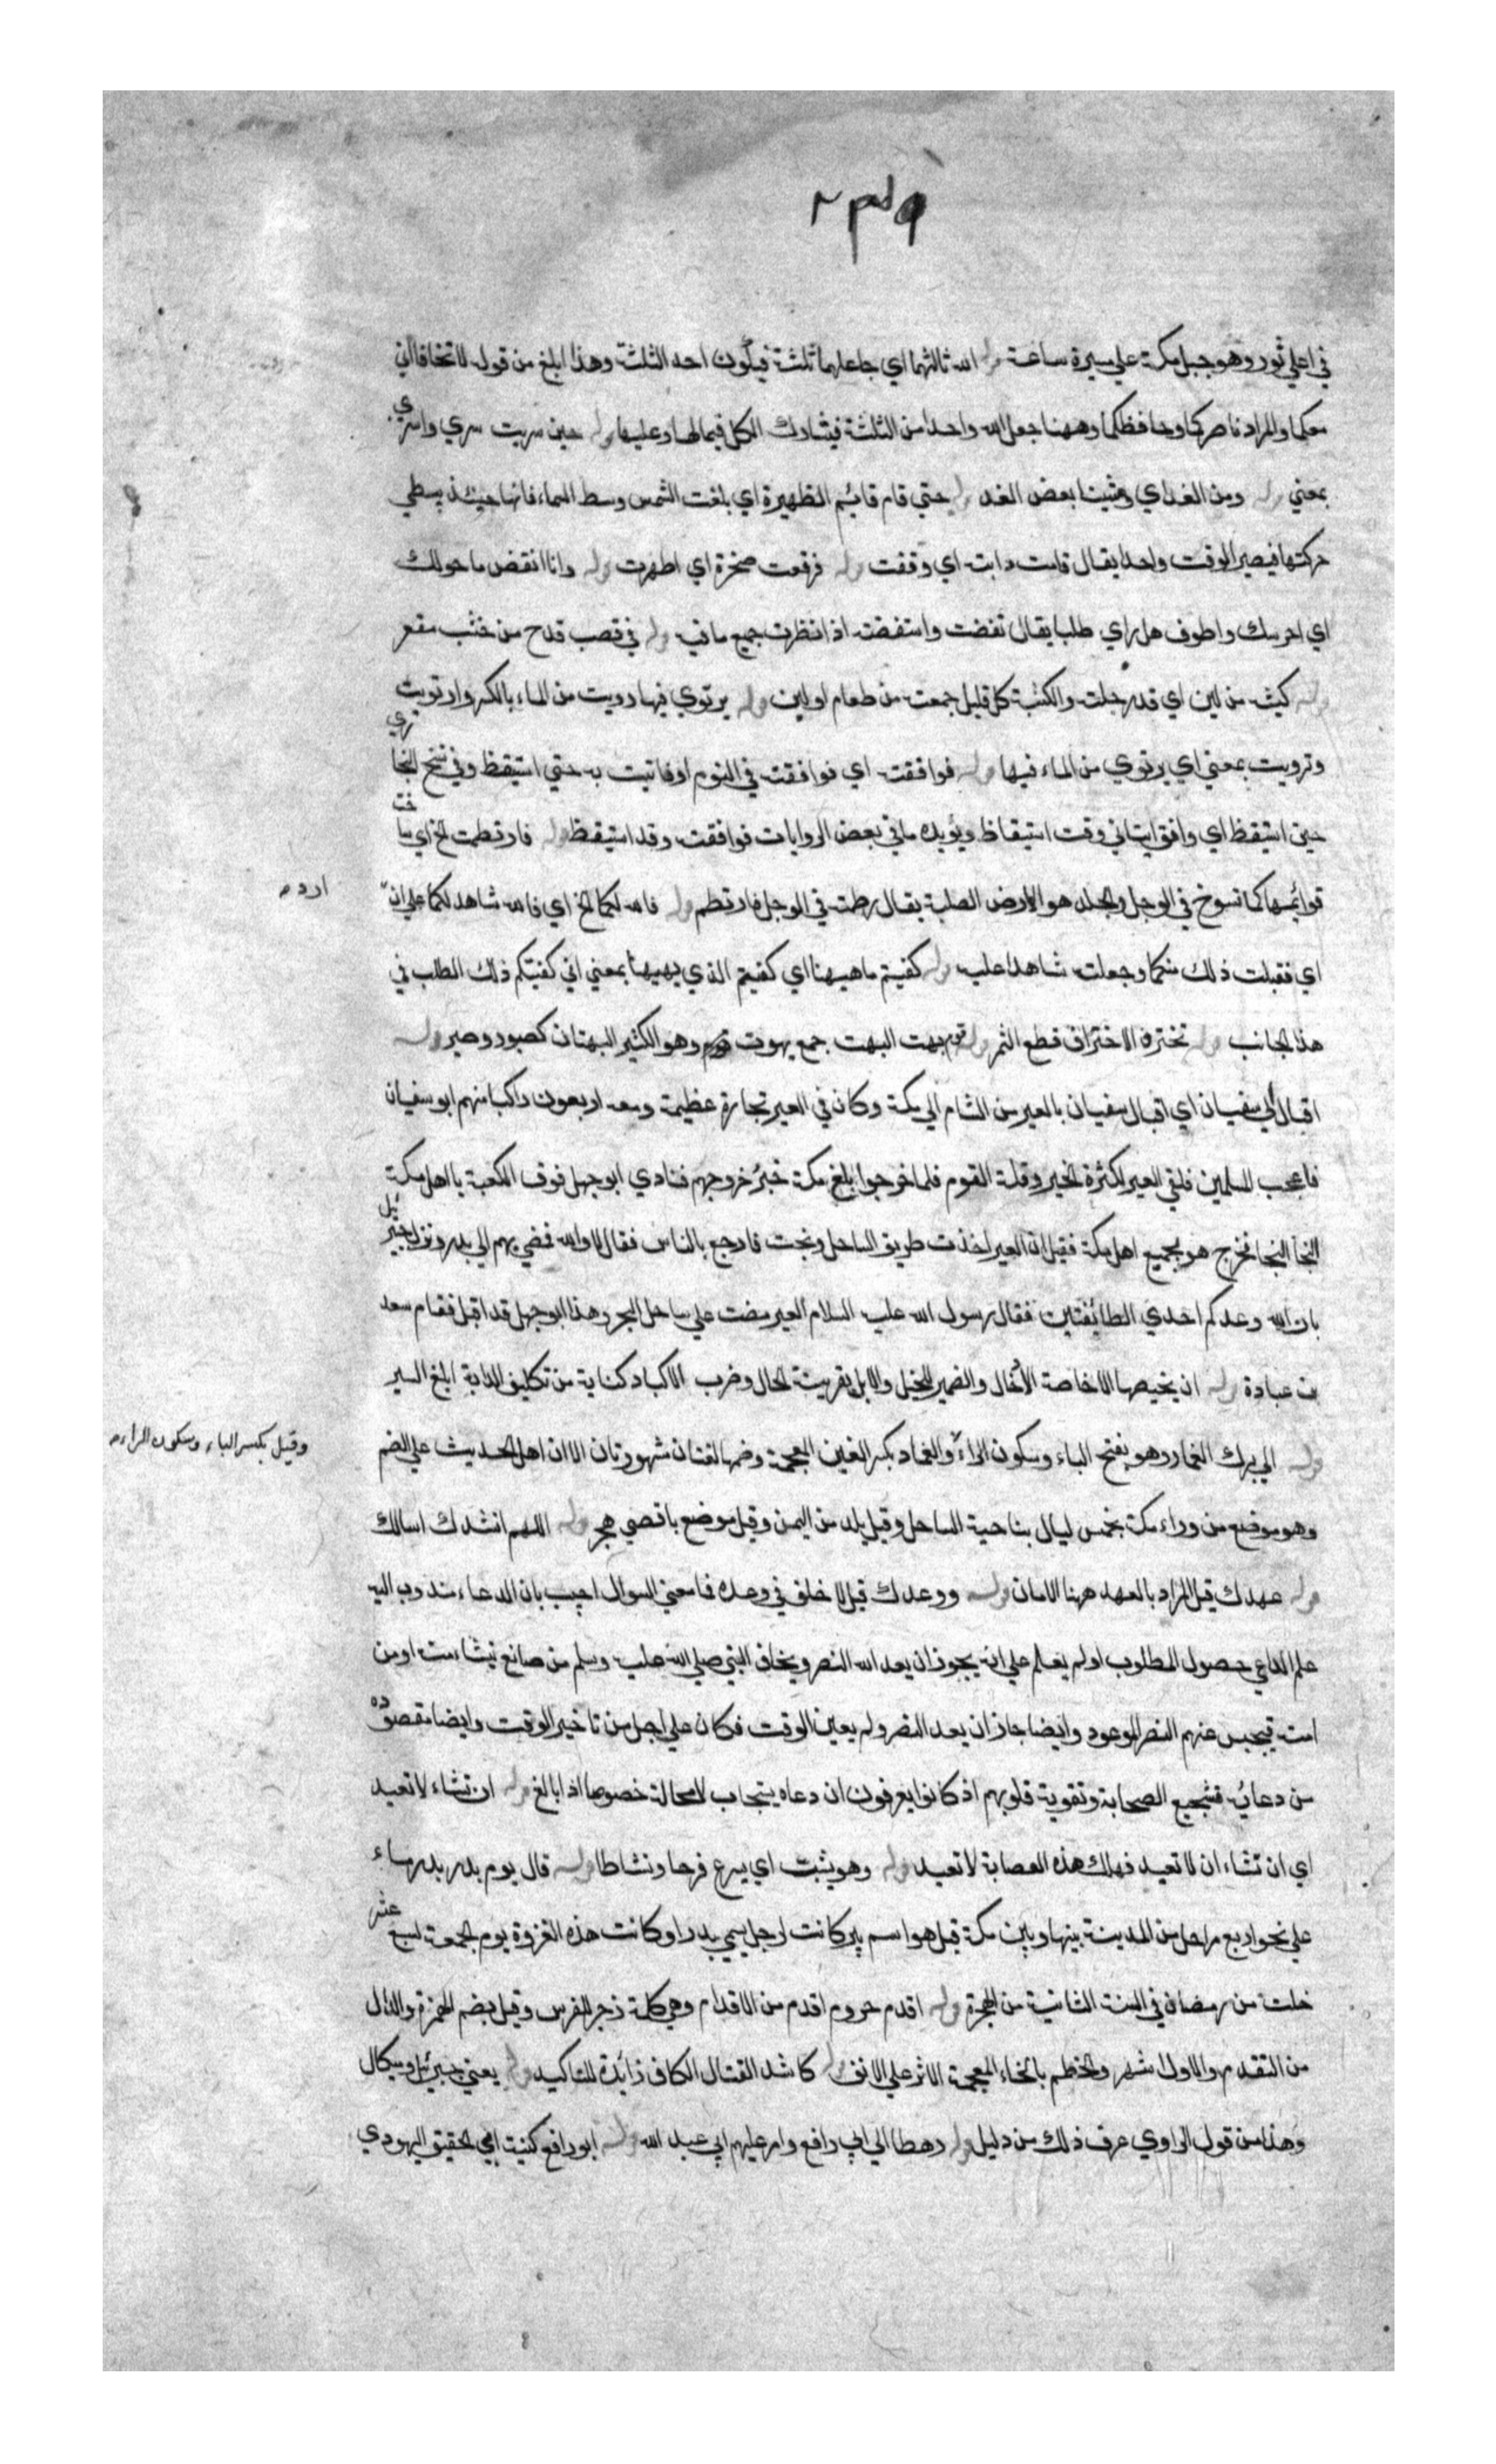 في اعلي ثور وهو جبل مكة علي مسيرة ساعة قوله الله ثالثهما اي جاعلهما ثلثة فيكون احد الثلثة وهذا ابلغ من قوله لا تخافا اني
معكما والمراد ناصركما وحافظكما وههنا جعل الله واحدا من الثلثة فيشارك الكل فيما لها وعليها قوله حين سريت سري واسري
بمعني قوله ومن الغد اي ومشينا بعض الغد قوله حتي قام قائم الظهيرة اي بلغت الشمس وسط السماء فانها حينئذ يبطي
حركتها فيصير الوقت واحدا يقال قامت دابته اي وقفت قوله فرفعت صخرة اي اظهرت قوله وانا انفض ما حولك
اي احرسك واطوف هل راي طلبا يقال نفضت واستنفضت اذا نظرت جميع ما فيه قوله في قصب قدح من خشب مقعر
قوله كثبة من لبن اي قدر حلبة والكثبة كل قليل جمعته من طعام او لبن قوله يرتوي فيها رويت من الماء بالكسر وارتويت
وترويت بمعني اي يرتوي من الماء فيها قوله فوافقته اي فوافقته في النوم او فاتيت به حتي استيقظ وفي نسخ البخاري
حين استيقظ اي وافق ايتاني وقت استيقاظ ويؤيده ما في بعض الروايات فوافقته وقد استيقظ قوله فارتطمت الخ اي ساخت
قوائمها كما تسوخ في الوحل والجلد هو الارض الصلبة يقال رطمته في الوحل فارتطم قوله فالله لكما الخ اي فالله شاهد لكما علي ان
ارد م
اي فقبلت ذلك منكما وجعلت شاهدا عليه قوله كفيتم ما ههنا اي كفيتم الذي ههنا بمعني اني كفيتكم ذلك الطلب في
هذا الجانب قوله تخترف الاختراف قطع الثمر قوله قوم بهت البهت جمع بهوت وهو الكثير البهتان كصبور وصبر قوله
اقبال ابي سفيان اي اقبال سفيان بالعير من الشام الي مكة وكان في العير تجارة عظيمة ومعه اربعون راكبا منهم ابو سفيان
فاعجب المسلمين فلقي العير لكثرة الخير وقلة القوم فلما خرجوا بلغ مكة خبر خروجهم فنادي ابو جهل فوق الكعبة يا اهل مكة
النجا النجا فخرج هو بجميع اهل مكة فقيل ان العير اخذت طريق الساحل ونجت فارجع بالناس فقال لا والله فمضي بهم الي بدر ونزل جبرئيل
بان الله وعدكم احدي الطائفتين فقال رسول الله عليه السلام العير مضت علي ساحل البحر وهذا ابو جهل قد اقبل فقام سعد
بن عبادة قوله ان نخيضها الاخاضة الادخال والضمير للخيل والابل بقرينة الحال وضرب الاكباد كناية من تكليف الدابة ابلغ السير
قوله الي برك الغماد وهو بفتح الباء وسكون الراء والغماد بكسر الغين المعجمة وضمها لغتان مشهورتان الا ان اهل الحديث علي الضم
وقيل بكسر الباء وسكون الراء م
وهو موضع من وراء مكة بخمس ليال بناحية الساحل وقيل بلد من اليمن وقيل موضع باقصي هجر قوله اللهم انشدك اسالك
قوله عهدك قيل المراد بالعهد ههنا الامان قوله ووعدك قيل لا خلف في وعده فما معني السوال اجيب بان الدعاء مندوب اليه
علم الداعي حصول المطلوب او لم يعلم علي انه يجوز ان يعد الله النصر ويخاف النبي صلي الله عليه وسلم من مانع نيشا منه او من
امته فيحبس عنهم النصر الموعود وايضا جاز ان يعد النصر ولم يعين الوقت فكان علي وجل من تاخير الوقت وايضا مقصوده
من دعائه تشجيع الصحابة وتقوية قلوبهم اذ كانوا يعرفون ان دعاه يستجاب لامحالة خصوصا اذا بالغ قوله ان تشاء لا تعبد
اي ان تشاء ان لا تعبد فهلك هذه العصابة لا تعبد قوله وهو يثبت اي يسرع فرحا ونشاطا قوله قال يوم بدر بدر ماء
علي نحو اربع مراحل من المدينة بينها وبين مكة قيل هو اسم بئر كانت لرجل يسمي بدرا وكانت هذه الغزوة يوم الجمعة لسبع عشر
خلت من رمضان في السنة الثانية من الهجرة قوله اقدم حيزوم اقدم من الاقدام وهي كلمة زجر للفرس وقيل بضم الهمزة والدال
من التقدم والاول اشهر والخطم بالخاء المعجمة الاثر علي الانف قوله كاشد القتال الكاف زائدة للتاكيد قوله يعني جبرئيل وميكال
وهذا من قول الراوي عرف ذلك من دليل قوله رهطا الي ابي رافع وامر عليهم ابي عبد الله قوله ابو رافع كنيته ابي الحقيق اليهودي